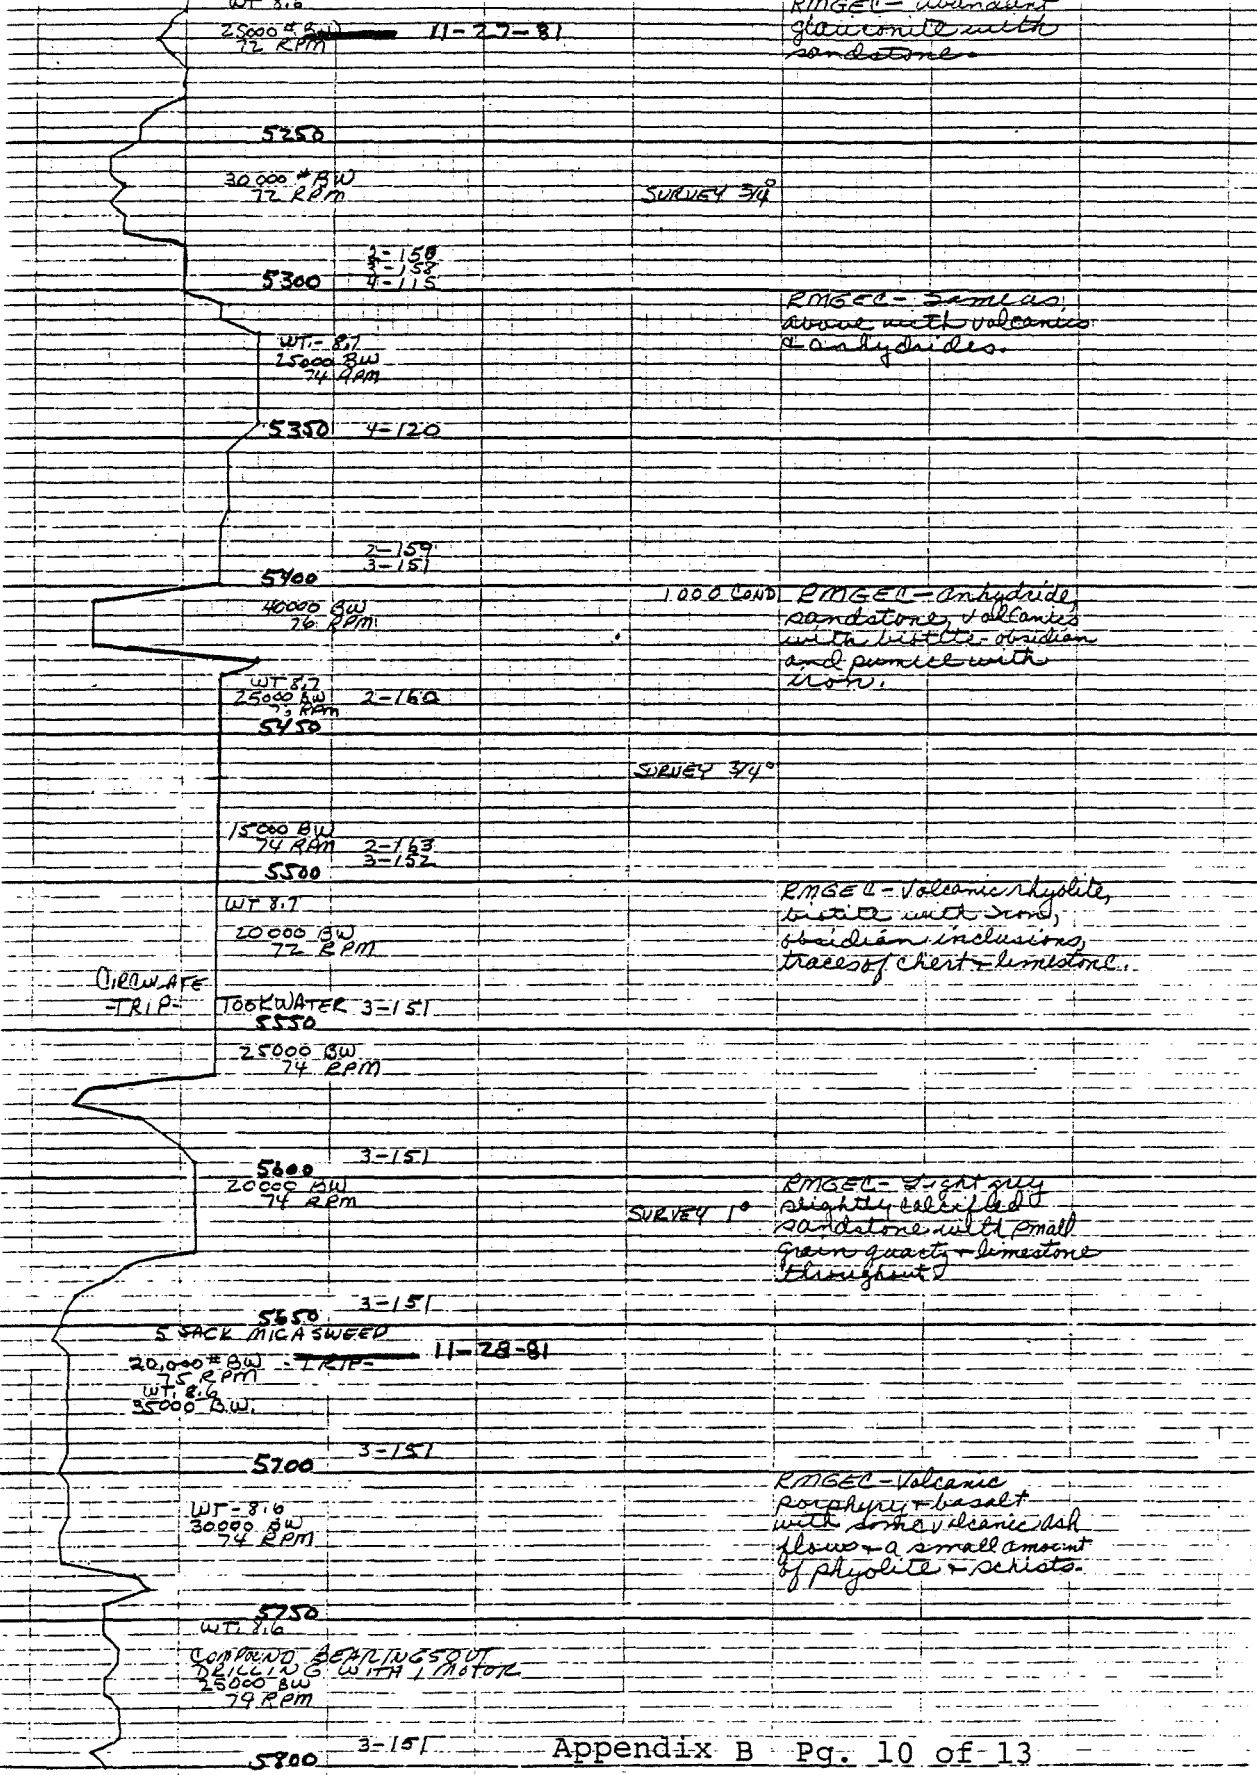 WT 8.6
25000 # BW
72 RPM
11-27-81
RMGEC - abundant
glauconite with
sandstone.
5250
30000 # BW
72 RPM
SURVEY 3/4°
2-158
3-158
4-115
5300
RMGEC - Same as
above with volcanics
& anhydrides.
WT.- 8.7
25000 BW
74 RPM
5350 4-120
2-159
3-151
5400
40000 BW
76 RPM
1000 COND
RMGEC - anhydride,
sandstone, volcanics
with biotite - obsidian
and pumice with
iron.
WT 8.7
25000 BW 2-160
RPM
5450
SURVEY 3/4°
15000 BW
74 RPM 2-163
3-152
5500
WT 8.7
20000 BW
72 RPM
RMGEC - Volcanic rhyolite,
biotite with iron,
obsidian inclusions,
traces of chert + limestone.
CIRCULATE
-TRIP-
TOOK WATER 3-151
5550
25000 BW
74 RPM
3-151
5600
20000 BW
74 RPM
SURVEY 1°
RMGEC - Light grey
slightly calcified
sandstone with small
grain quartz + limestone
throughout
3-151
5650
5 SACK MICA SWEED
11-28-81
20,000 # BW -TRIP-
75 RPM
WT. 8.6
35000 B.W.
3-151
5700
WT - 8.6
30000 BW
74 RPM
RMGEC - Volcanic
porphyry + basalt
with some volcanic ash
flows + a small amount
of phyolite + schists.
5750
WT. 8.6
COMPOUND BEARINGS OUT
DRILLING WITH 1 MOTOR
25000 BW
79 RPM
3-151
5800
Appendix B Pg. 10 of 13